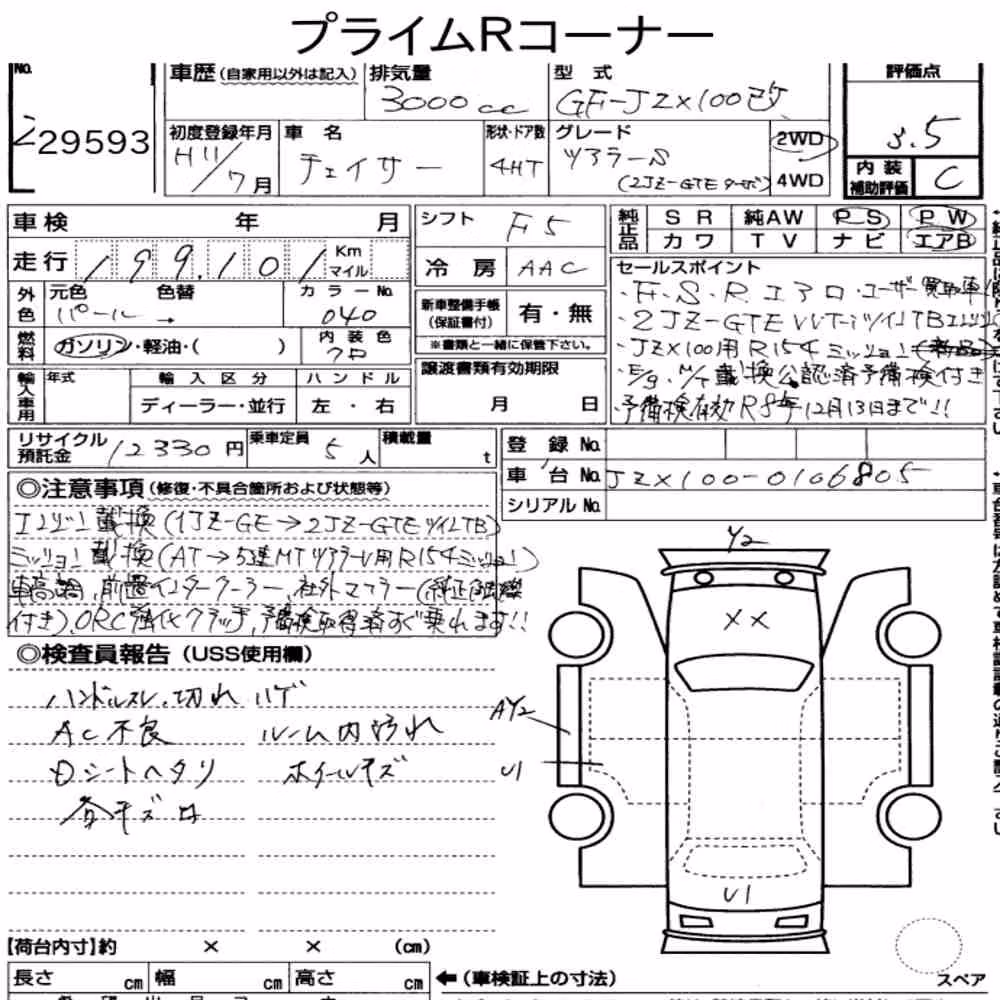 プライムRコーナー
No. 229593
車歴(自家用以外は記入)
排気量 3000cc
型式 GF-JZX100改
評価点 3.5
内装補助評価 C
初度登録年月 H11/7月
車名 チェイサー
形状・ドア数 4HT
グレード ツアラーS
(2JZ-GTEターボ)
2WD
4WD
車検 年 月
走行 199,101 Km マイル
シフト F5
冷房 AAC
純正品 SR 純AW PS PW
カワ TV ナビ エアB
外色 元色 パール 色替
カラーNo. 040
燃料 ガソリン・軽油・( )
内装色 クロ
新車整備手帳(保証書付) 有・無
※書類と一緒に保管下さい。
セールスポイント
・F.S.Rエアロ・ユーザー買取車!
・2JZ-GTE VVT-iツインTBエンジン
・JZX100用R154ミッション
・E/g.M/T載換公認済予備検付き
予備検有効R8年12月13日まで!!
輸入車用 年式
輸入区分 ディーラー・並行
ハンドル 左・右
譲渡書類有効期限 月 日
リサイクル預託金 12330円
乗車定員 5人
積載量 t
登録No.
車台No. JZX100-0106805
シリアルNo.
◎注意事項(修復・不具合箇所および状態等)
エンジン載換(1JZ-GE→2JZ-GTEツインTB)
ミッション載換(AT→5速MTツアラーV用R154ミッション)
車高調、前置インタークーラー、社外マフラー(純正
付き)、ORC強化クラッチ、予備検取得済すぐ乗れます!!
◎検査員報告(USS使用欄)
ハンドルスレ、切れ ハゲ
AC不良 ルーム内汚れ
Dシートヘタリ ホイールキズ
各キズ凹
Y2
XX
AY2
U1
U1
【荷台内寸】約 × × (cm)
長さ cm 幅 cm 高さ cm
←(車検証上の寸法)
スペア